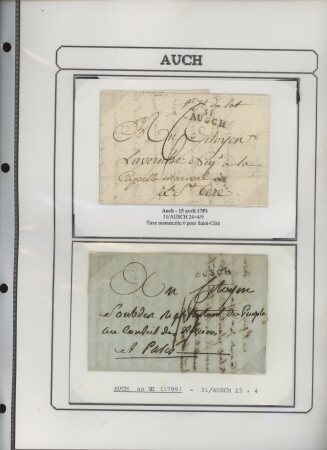 AUCH
Dt du Lot
31
AUCH
Au Citoyen
Lavernhe Negt à la
Capelle
à St Ceré
Auch - 15 avril 1795
31/AUCH 24*4/9
Taxe manuscrite 6 pour Saint-Céré
AUCH
Au Citoyen
Représentant du Peuple
au Conseil des
à Paris
AUCH an VII (1799) - 31/AUCH 23 . 4